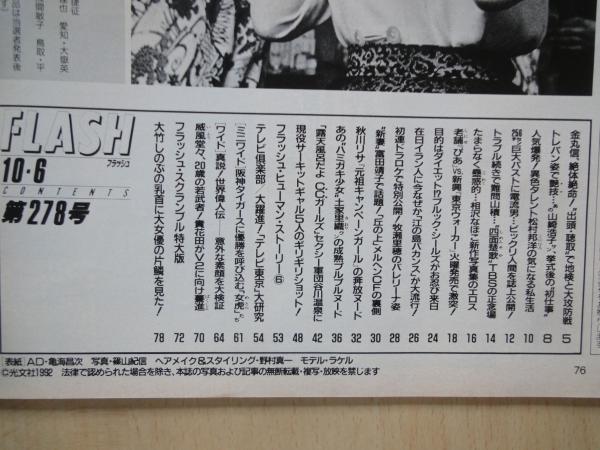 催也 愛知・大嶽英
間敏子 鳥取・平
品は当選者発表後
FLASH
フラッシュ
10・6
CONTENTS
第278号
金丸信、絶体絶命!「出頭・聴取」で地検と大攻防戦 5
トレパン姿で熱技…“山崎浩子”、挙式後の“初仕事” 8
人気爆発!異色タレント松村邦洋の気になる私生活 10
250㌢巨大バストに電流男…ビックリ人間を誌上公開! 12
トラブル続きで難問山積…“四面楚歌”TBSの正念場 14
たまらなく蠱惑的…相沢なほこ新作写真集のエロス 16
老舗「ぴあ」vs.新興「東京ウォーカー」火曜発売で激突! 18
目的はダイエット!?ブルック・シールズがお忍び来日 22
在日イラン人に今なぜか「江の島バカンス」が大流行! 24
初連ドラロケで特別公開!牧瀬里穂のバレリーナ姿 26
“新妻”富田靖子で話題!「江のよメルヘン」Fの裏側 28
秋川リサ「元祖キャンペーンガール」の奔放ヌード 30
あの“バミガキ少女”土家里織。の成熟プルプルヌード 32
「露天風呂だよ CCガールズ」セクシー軍団谷川温泉に 36
現役サーキットギャル5人のギリギリショット! 42
フラッシュ・ヒューマン・ストーリー⑥ 48
テレビ倶楽部/大躍進!「テレビ東京」大研究 53
[ミニワイド]阪神タイガースに優勝を呼び込む“女虎”たち 54
[ワイド]真説!世界偉人伝――意外な素顔を大検証 61
威風堂々、20歳の若武者!貴花田がV3に向け驀進 64
フラッシュ・スクランブル特大版 70
大竹しのぶの乳首に大女優の片鱗を見た! 72
78
[表紙]AD・亀海昌次 写真・篠山紀信 ヘアメイク&スタイリング・野村真一 モデル・ラケル
©光文社1992 法律で認められた場合を除き、本誌の写真および記事の無断転載・複写・放映を禁じます
76